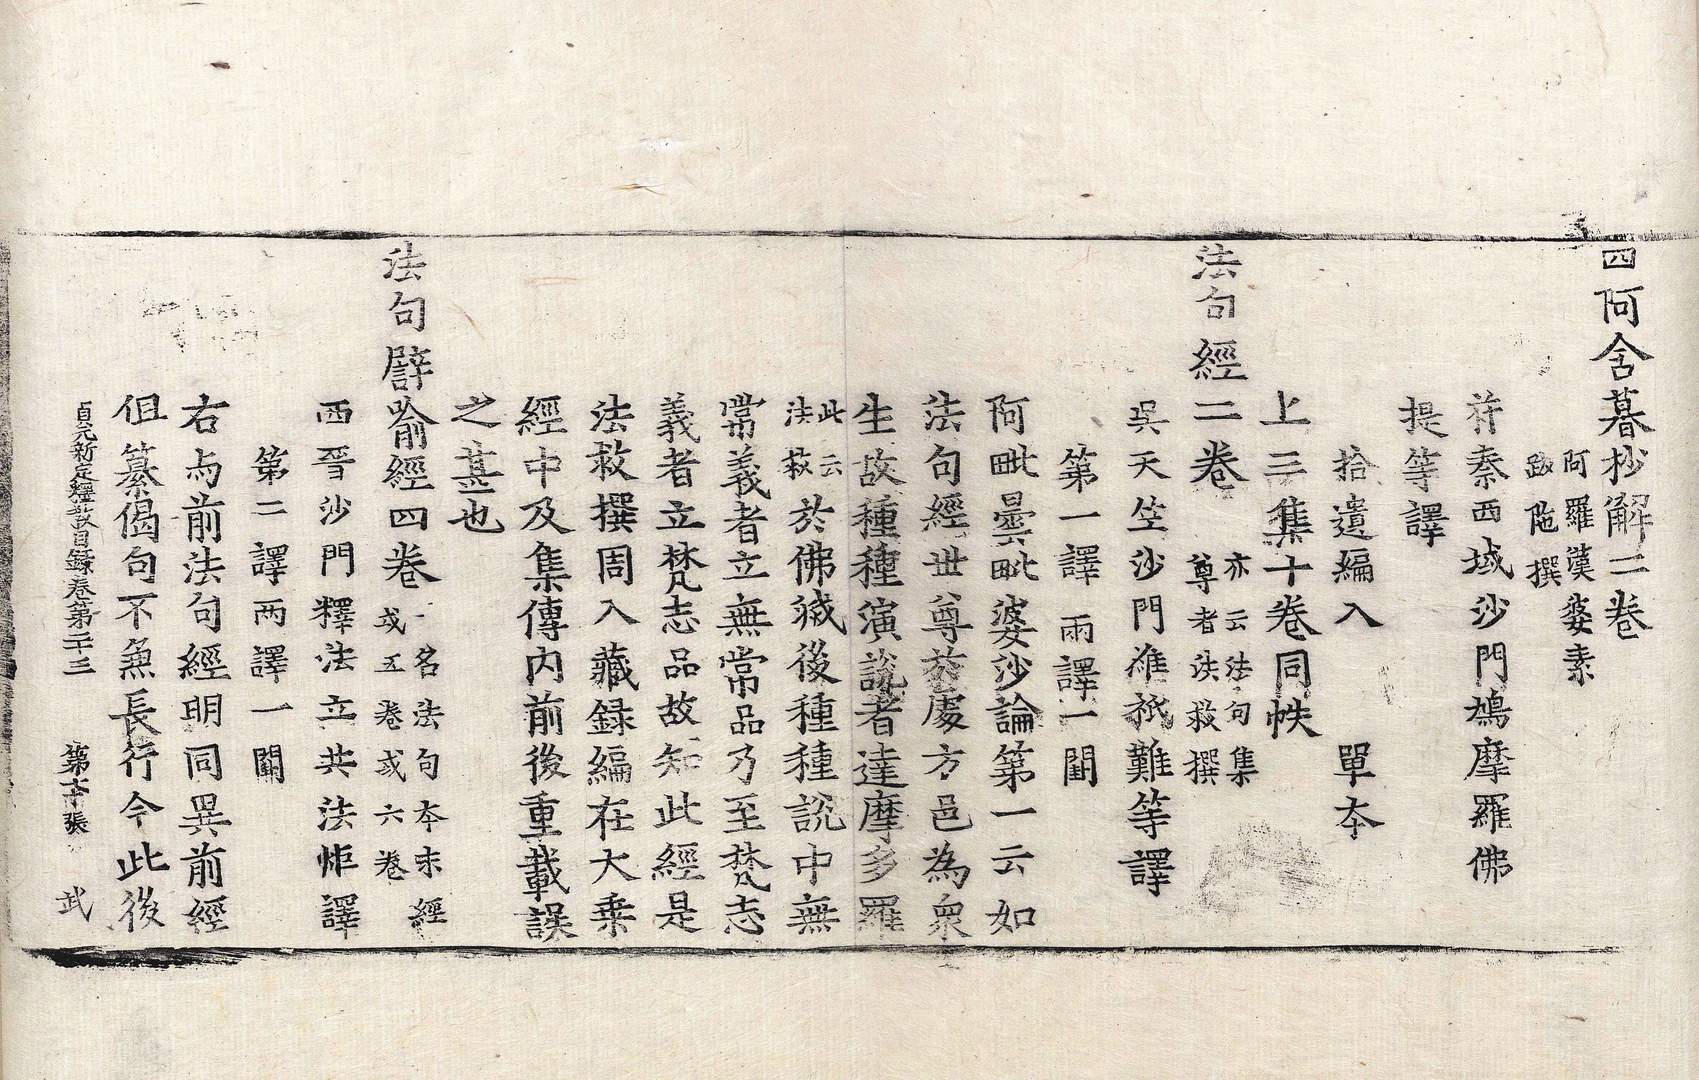 四阿含暮抄解二卷
阿羅漢婆素
跋陁撰
苻秦西域沙門鳩摩羅佛
提等譯
拾遺編入 單本
上三集十卷同帙
法句經二卷
亦云法句集
尊者法救撰
吳天竺沙門維祇難等譯
第一譯 兩譯一闕
阿毗曇毗婆沙論第一云如
法句經世尊於處方邑為衆
生故種種演說者達摩多羅
此云
法救
於佛滅後種種說中無
常義者立無常品乃至梵志
義者立梵志品故知此經是
法救撰周入藏録編在大乗
經中及集傳内前後重載誤
之甚也
法句譬喻經四卷
一名法句本末經
或五卷或六卷
西晉沙門釋法立共法炬譯
第二譯兩譯一闕
右与前法句經明同異前經
但纂偈句不兼長行今此後
貞元新定釋教目録卷第二十三 第十張 武